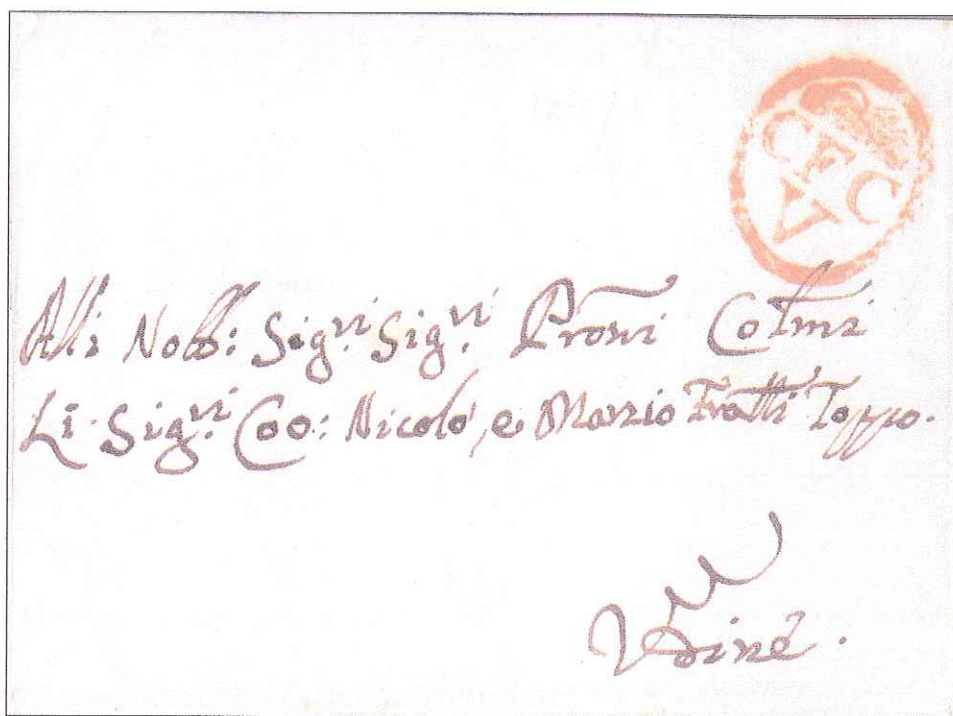 C F C
V
Alli Nobb: Sig.ri Sig.ri Proñi Colmi
Li Sig.ri Coo: Nicolò, e Marzio Fratti Toppo.
Vdine.